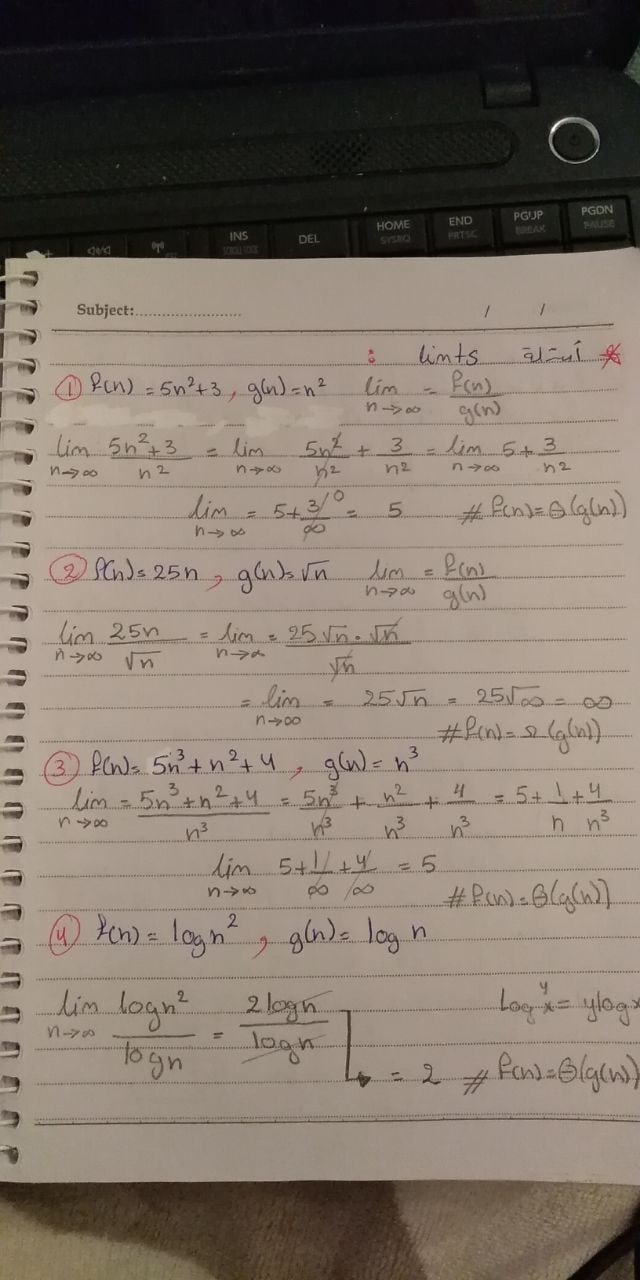 INS
SCROLL LOCK
DEL
HOME
SYSRQ
END
PRTSC
PGUP
BREAK
PGDN
PAUSE
Subject:........................ / /
* أسئلة limts :
① f(n) = 5n²+3, g(n)=n² lim n→∞ = f(n)/g(n)
lim n→∞ (5n²+3)/n² = lim n→∞ 5n²/n² + 3/n² = lim n→∞ 5+3/n²
lim n→∞ = 5+3/∞ 0 = 5 # f(n)=Θ(g(n))
② f(n)=25n, g(n)=√n lim n→∞ = f(n)/g(n)
lim n→∞ 25n/√n = lim n→∞ = 25√n·√n/√n
= lim n→∞ = 25√n = 25√∞ = ∞
# f(n)=Ω(g(n))
③ f(n)= 5n³+n²+4, g(n)=n³
lim n→∞ = (5n³+n²+4)/n³ = 5n³/n³ + n²/n³ + 4/n³ = 5+1/n+4/n³
lim n→∞ 5+1/∞+4/∞ = 5
# f(n)=Θ(g(n))
④ f(n) = log n², g(n)= log n
lim n→∞ log n²/log n = 2 log n/log n log x^y = y log x
= 2 # f(n)=Θ(g(n))